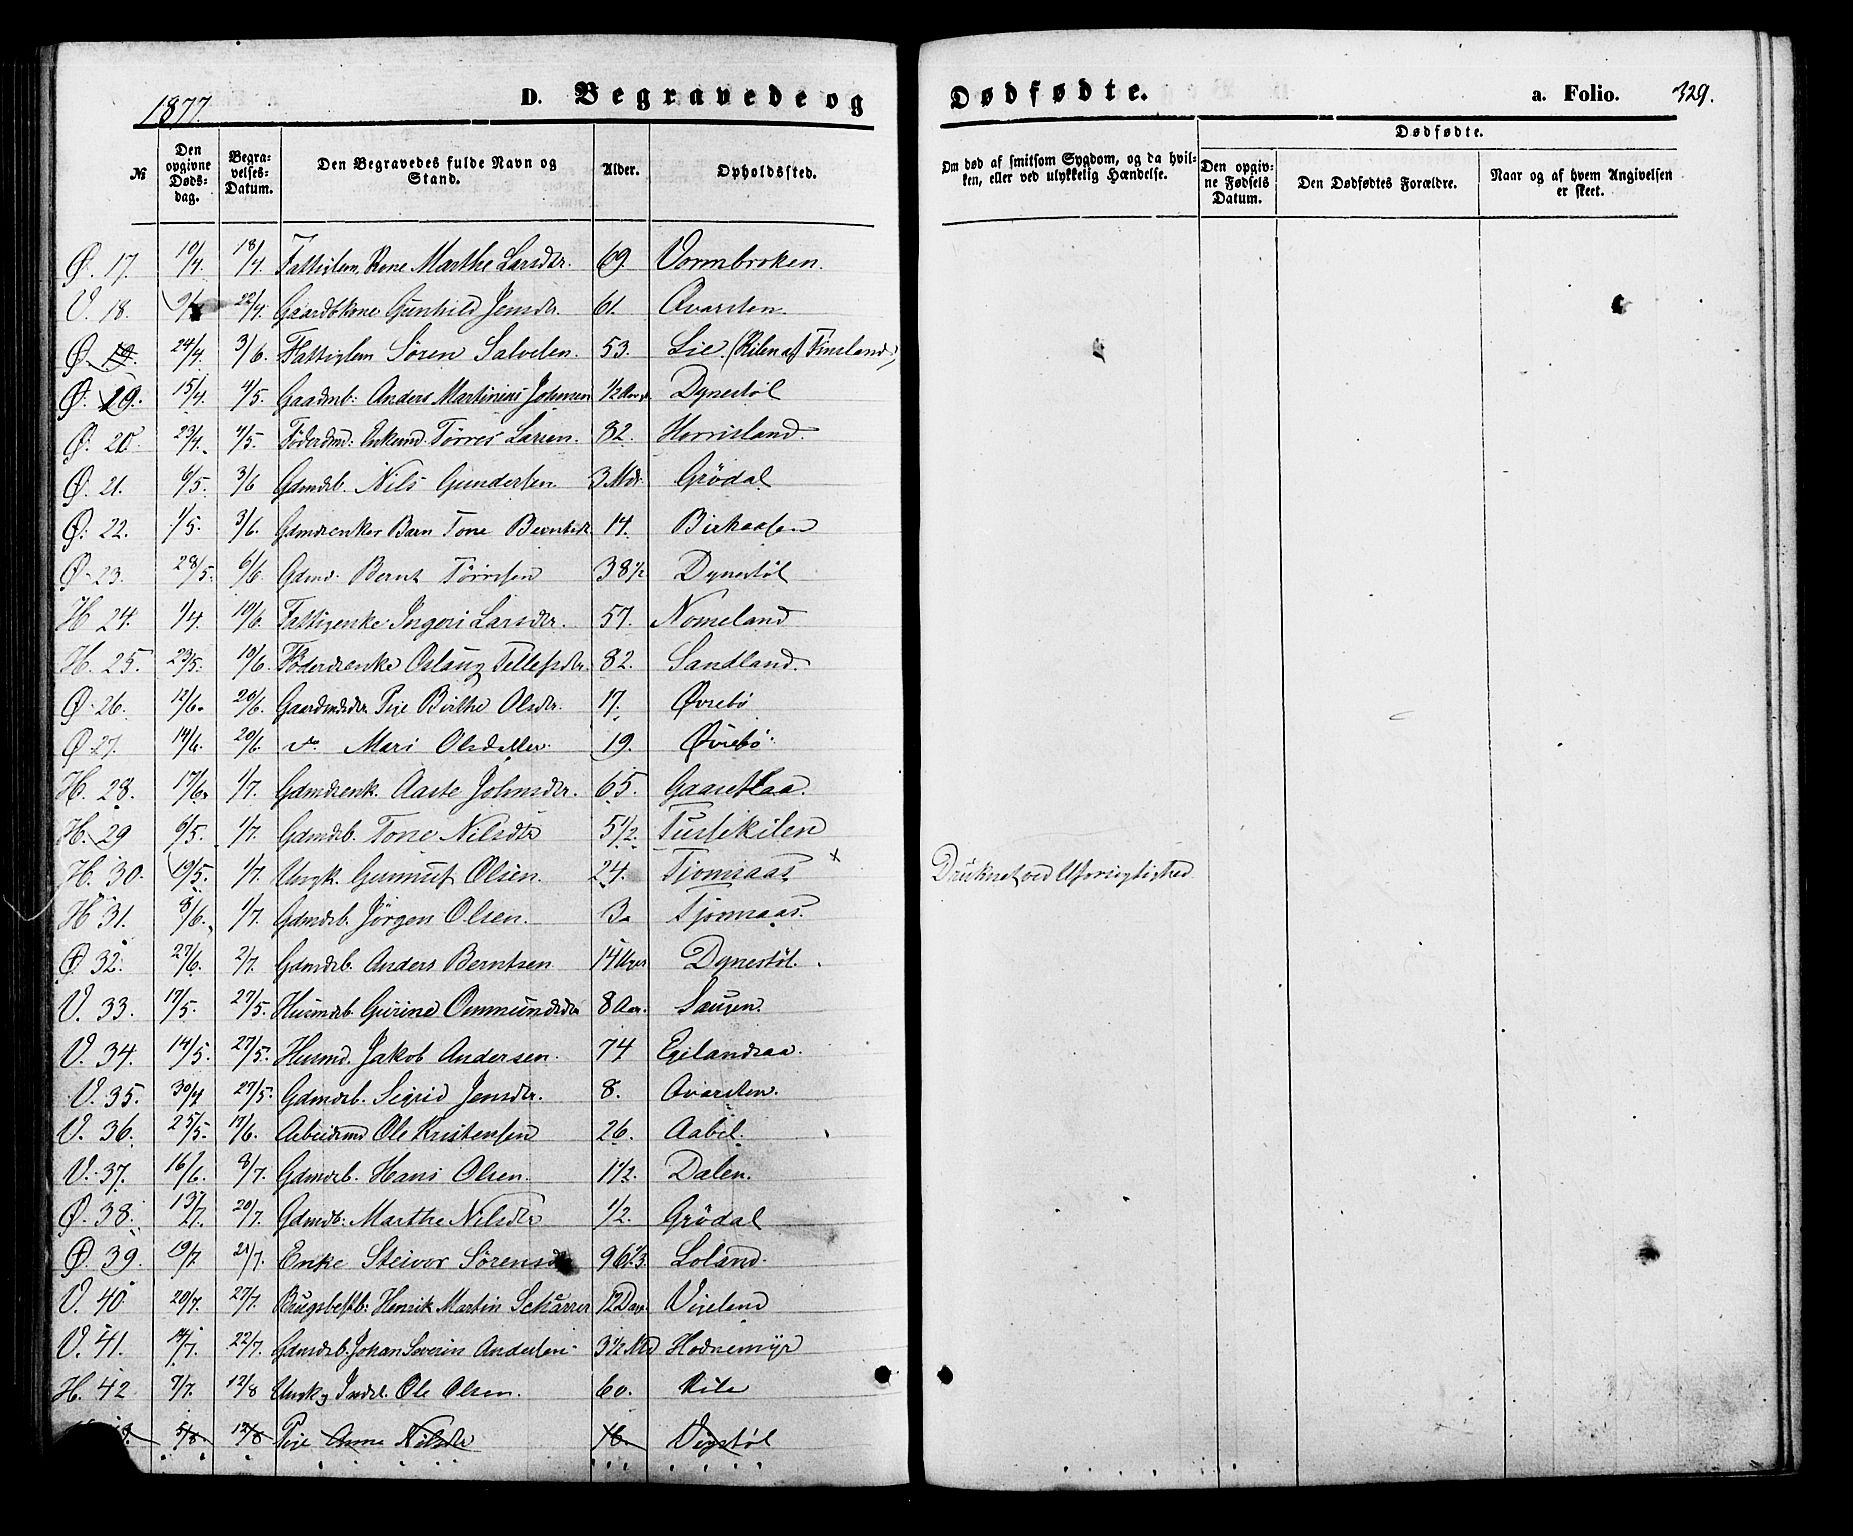 1877. D. Begravede og Dødfødte. a. Folio. 329.
№ Den opgivne Døds-dag. Begra-velses-Datum. Den Begravedes fulde Navn og Stand. Alder. Opholdssted. Om død af smitsom Sygdom, og da hvil-ken, eller ved ulykkelig Hændelse. Dødfødte. Den opgiv-ne Fødsels Datum. Den Dødfødtes Forældre. Naar og af hvem Angivelsen er skeet.
Ø. 17. 10/4. 18/4. Fattiglem, Kone Marthe Larsdtr. 69. Vormbroken.
V. 18. 22/4. Gaardbkone Gunhild Jensdtr. 61. Qvarsten.
Ø. 19. 24/4. 3/6. Fattiglem Sören Salvesen. 53. Lie. (Kilen af Finsland)
Ø. 19. 15/4. 4/5. Gaadmb: Anders Martinius Johnsen 1/2 Aar Dynestöl
Ø. 20. 23/4. 4/5. Föderdmd: Enkemd. Törres Larsen. 82. Horrisland.
Ø. 21. 6/5. 3/6 Gdmdsb. Nils Gundersen. 3 Mdr. Grödal
Ø. 22. 1/5. 3/6. Gdmdsenkes Barn Tone Berntsdt. 14. Birkaasen
Ø. 23. 28/5. 6/6. Gdmd. Bernt Törresen 38 1/2 Dynestöl
H. 24. 1/4. 10/6. Fattigenke Ingeri Larsdtr. 57. Nomeland
H. 25. 23/5. 10/6. Föderdsenke Oslaug Tellefsdtr. 82. Sandland.
Ø. 26. 12/6. 20/6. Gaardmdsdtr. Pige Birthe Olsdtr. 17. Øvrebö
Ø. 27. 14/6. 20/6. do Mari Olsdatter. 19. Øvrebö.
H. 28. 17/6. 1/7. Gdmdsenk. Aaste Johnsdtr. 65. Gaaseflaa.
H. 29 6/5. 1/7. Gdmdsb. Tone Nilsdtr 5 1/2. Tussekilen
H. 30. 19/5. 1/7. Ungk. Gunnuf Olsen. 24. Tjomsaas x Druknet ved Uforsigtighed.
H. 31. 8/6. 1/7. Gdmdsb. Jörgen Olsen. 3. Tjomsaas.
Ø. 32. 27/6. 2/7. Gdmdsb. Anders Berntsen 14 Uger Dynestöl.
V. 33. 17/5. 27/5. Husmdsb. Gurine Ommundsdtr 8 Aar. Saugen.
V. 34. 14/5. 27/5. Husmd. Jakob Andersen. 74 Egelandsaa.
V. 35. 30/4 27/5. Gdmdsb. Sigrid Jensdtr. 8. Qvarsten.
V. 36. 25/5. 17/6. Arbeidsmd Ole Kristensen 26. Aabel.
V. 37. 16/6. 8/7. Gdmdsb. Hans Olsen. 1 1/2. Dalen.
Ø. 38. 13/7. 20/7. Gdmdsb: Marthe Nilsdtr 1/2. Grödal
Ø. 39. 19/7. Enke Steivor Sörensdtr 96 1/3. Loland.
V. 40 20/7. 27/7. Brugsbestb: Henrik Martin Schärrer 12 Dage Vigeland
V. 41. 22/7. Gdmdsb. Johan Severin Andersen 3 1/2 Md Hodnemyr
H. 42 7/7. 12/8 Ungk, Inderst. Ole Olsen. 60. Kile
5/8. 12/8 Pige Anne Nilsdtr 16. Vegstöl